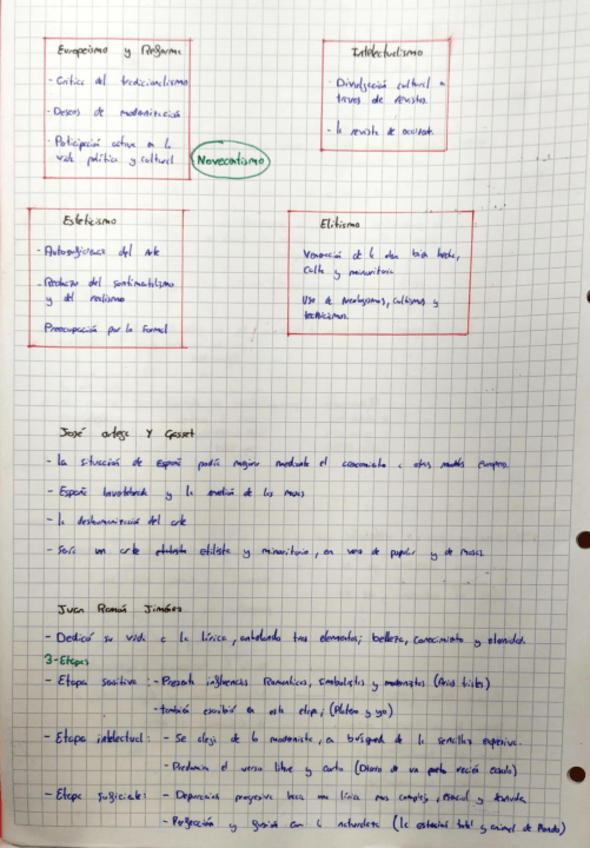 Europeismo y Reforma
- Crítica del tradicionalismo
- Deseos de modernización
- Participación activa en la
vida política y cultural
Novecentismo
Intelectualismo
- Divulgación cultural a
través de revistas.
- la revista de occidente.
Esteticismo
- Autosuficiencia del Arte
- Rechazo del sentimentalismo
y del realismo
Preocupación por lo formal
Elitismo
de la obra bien hecha,
culta y minoritaria
Uso de neologismos, cultismos y
tecnicismos.
José ortega Y Gasset
- la situación de España podía mejorar mediante el conocimiento a otros europeos.
- España Invertebrada y la rebelión de las masas
- la deshumanización del arte
- Sería un arte elitista y minoritario, en vez de popular y de masas.
Juan Ramón Jiménez
- Dedicó su vida a la lírica, anhelando tres elementos; belleza, conocimiento y eternidad.
3-Etapas
- Etapa sensitiva: - Presenta influencias Románticas, Simbolistas y modernistas (Arias tristes)
- también escribió en esta etapa; (Platero y yo)
- Etapa intelectual: - Se aleja de lo modernista, en búsqueda de la sencillez expresiva.
- Predomina el verso libre y corto (Diario de un poeta recién casado)
- Etapa : - Depuración progresiva hacia una lírica más compleja, esencial y desnuda
- Perfección y fusión con la naturaleza (la estación total y animal de fondo)